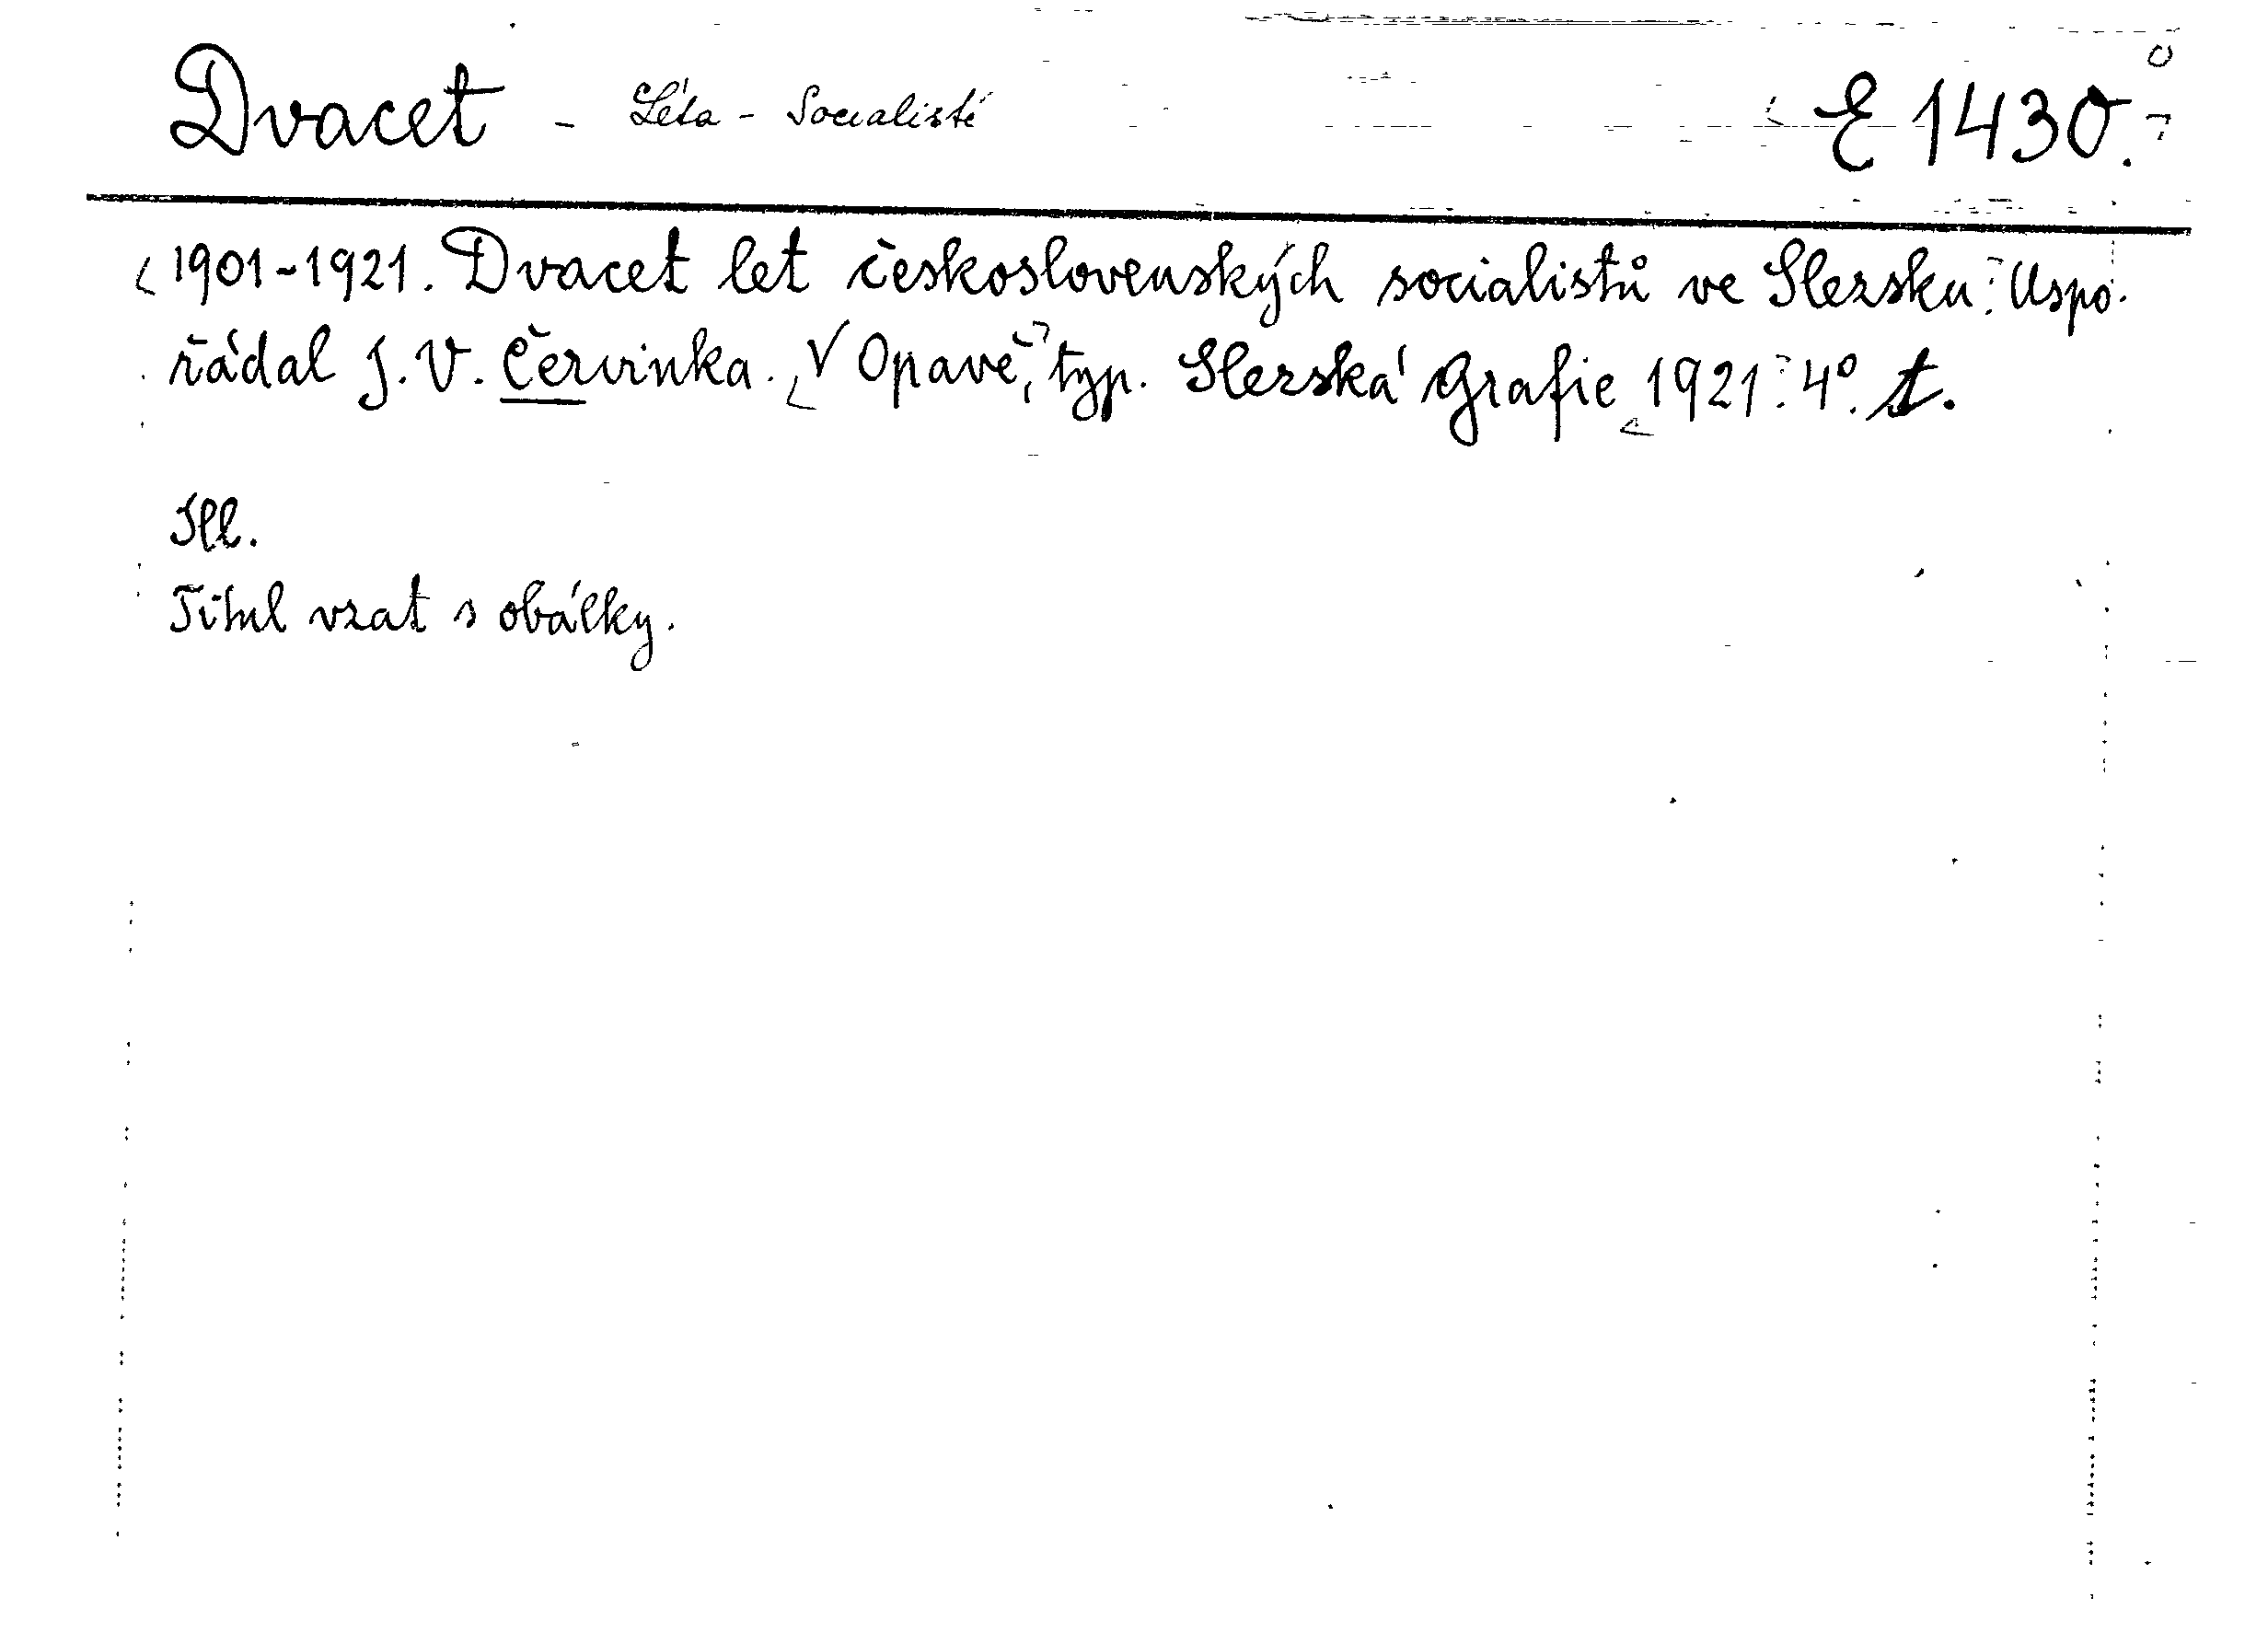 Dvacet - Léta - Socialisté E 1430.
1901-1921. Dvacet let československých socialistů ve Slezsku. Uspo-
řádal J. V. Červinka. V Opavě, typ. Slezská Grafie 1921. 4°. t.
Ill.
Titul vzat s obálky.